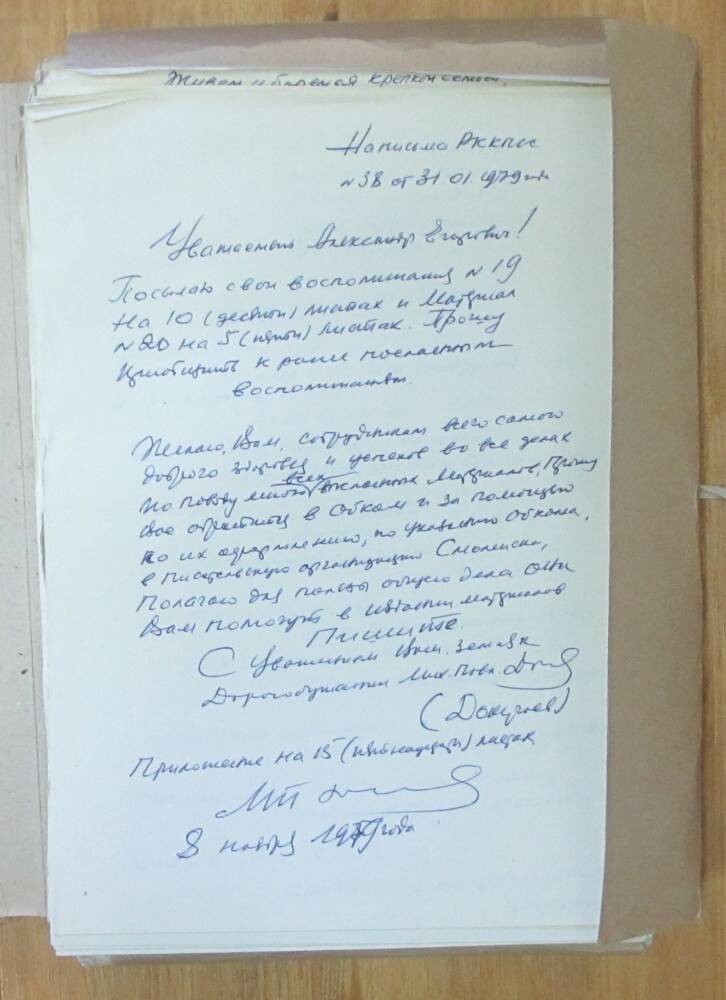 Живем и боремся крепкой семьей.
На письмо РККПСС
№ 38 от 31 01. 1979 г.
Уважаемый Александр Егорович!
Посылаю свои воспоминания № 19
на 10 (десяти) листах и Материал
№ 20 на 5 (пяти) листах. Прошу
приобщить к ранее посланным
воспоминаниям.
Желаю, Вам, сотрудникам всего самого
доброго здоровья и успехов во всех делах
По поводу моих всех Материалов, Прошу
Вас обратиться в Обком и за помощью
по их оформлению, по указанию Обкома,
в писательскую организацию Смоленска,
Полагаю для пользы общего дела они
Вам помогут в издании материалов
Пишите
С уважением Ваш земляк
Дорогобужанин Мих. Павл.
(Докучаев)
Приложение на 15 (пятнадцати) листах
МП
8 ноября 1979 года